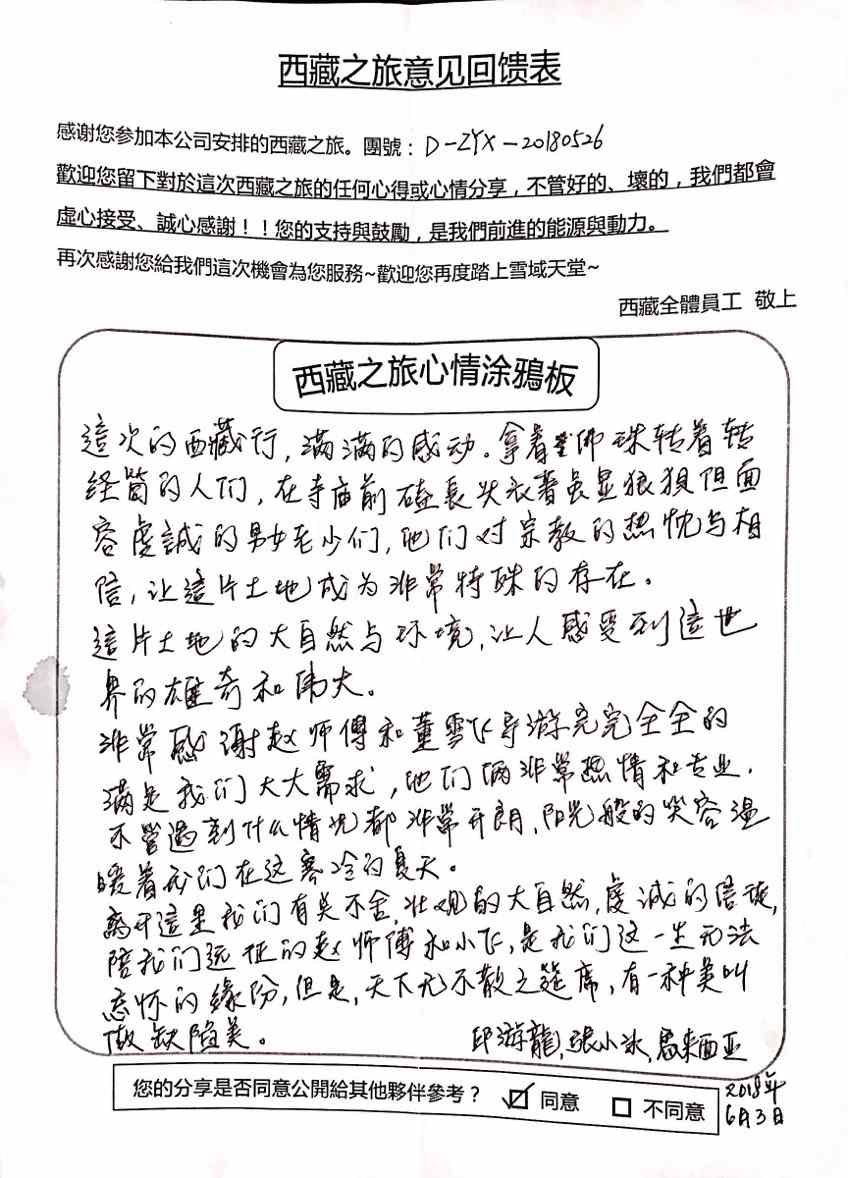 西藏之旅意见回馈表
感谢您参加本公司安排的西藏之旅。團號：D-ZYX-20180526
歡迎您留下對於這次西藏之旅的任何心得或心情分享，不管好的、壞的，我們都會
虛心接受、誠心感謝！！您的支持與鼓勵，是我們前進的能源與動力。
再次感謝您給我們這次機會為您服務~歡迎您再度踏上雪域天堂~
西藏全體員工 敬上
西藏之旅心情涂鴉板
這次的西藏行，满满的感动。拿着佛珠转着转
经筒的人们，在寺庙前磕長头衣著虽显狼狽但面
容虔誠的男女老少们，他们对宗教的热忱与相
信，让這片土地成为非常特殊的存在。
這片土地的大自然与环境，让人感受到這世
界的雄奇和偉大。
非常感谢赵师傅和董雪飞导游完完全全的
满足我们大大需求，他们俩非常热情和专业，
不管遇到什么情况都非常开朗，阳光般的笑容温
暖着我们在这寒冷的夏天。
离开這里我们有关不舍，壮观的大自然，虔诚的信徒，
陪我们远征的赵师傅和小飞，是我们这一生无法
忘怀的緣份，但是，天下无不散之筵席，有一种美叫
做缺陷美。
邱游龍，張小冰，馬来西亚
您的分享是否同意公開給其他夥伴參考？ ☑ 同意 □ 不同意
2018年
6月3日